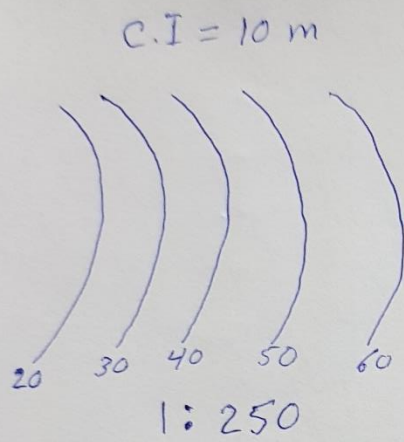 C.I = 10 m
20 30 40 50 60
1: 250